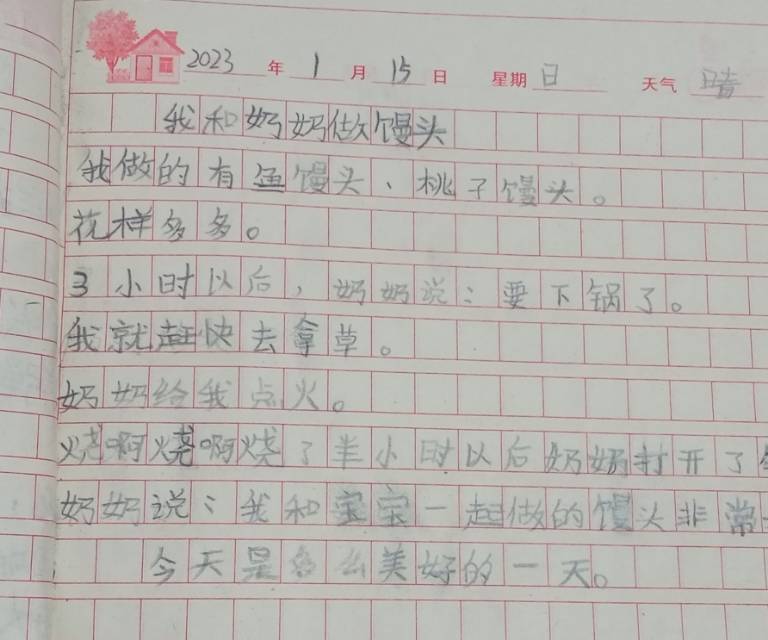 2023 年 1 月 15 日 星期 日 天气 晴
我和奶奶做馒头
我做的有鱼馒头、桃子馒头。
花样多多。
3小时以后，奶奶说：要下锅了。
我就赶快去拿草。
奶奶给我点火。
烧啊烧啊烧了半小时以后奶奶打开了
奶奶说：我和宝宝一起做的馒头非常
今天是多么美好的一天。